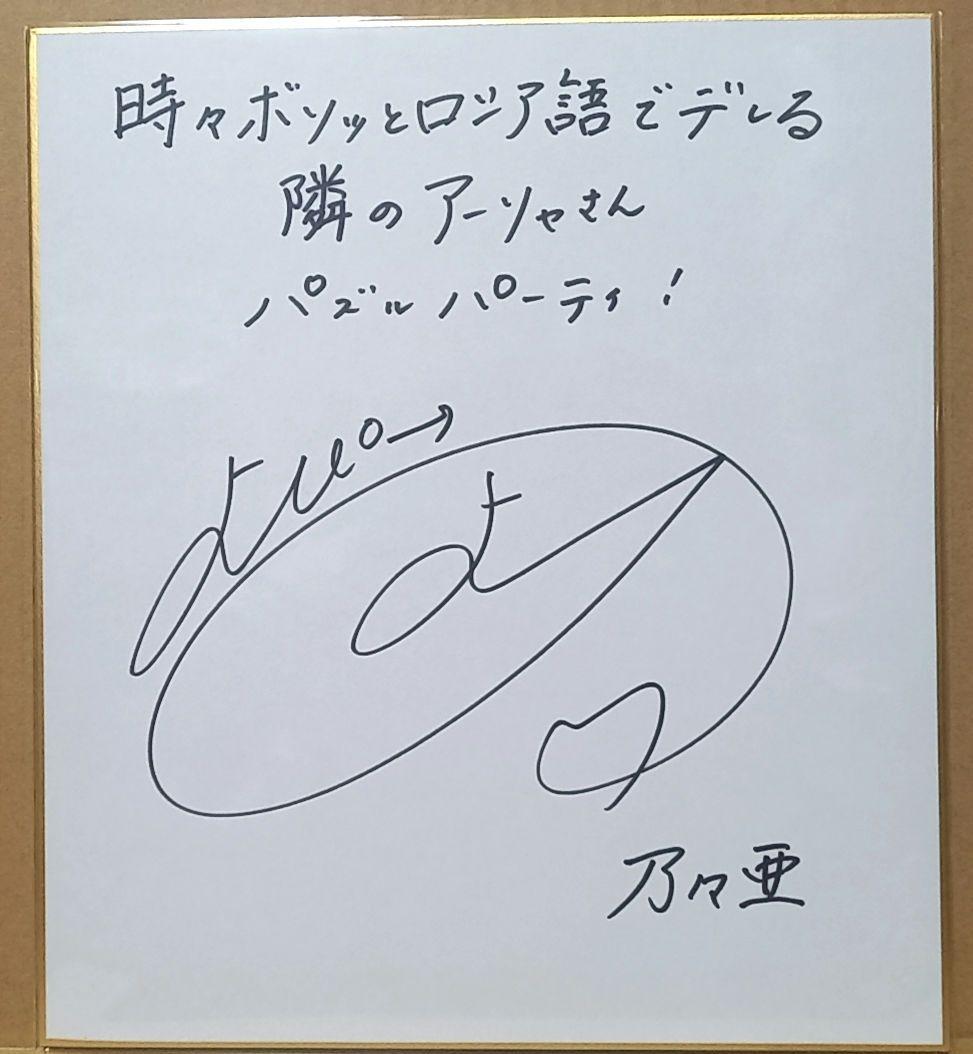 時々ボソッとロシア語でデレる
隣のアーリャさん
パズルパーティ！
乃々亜